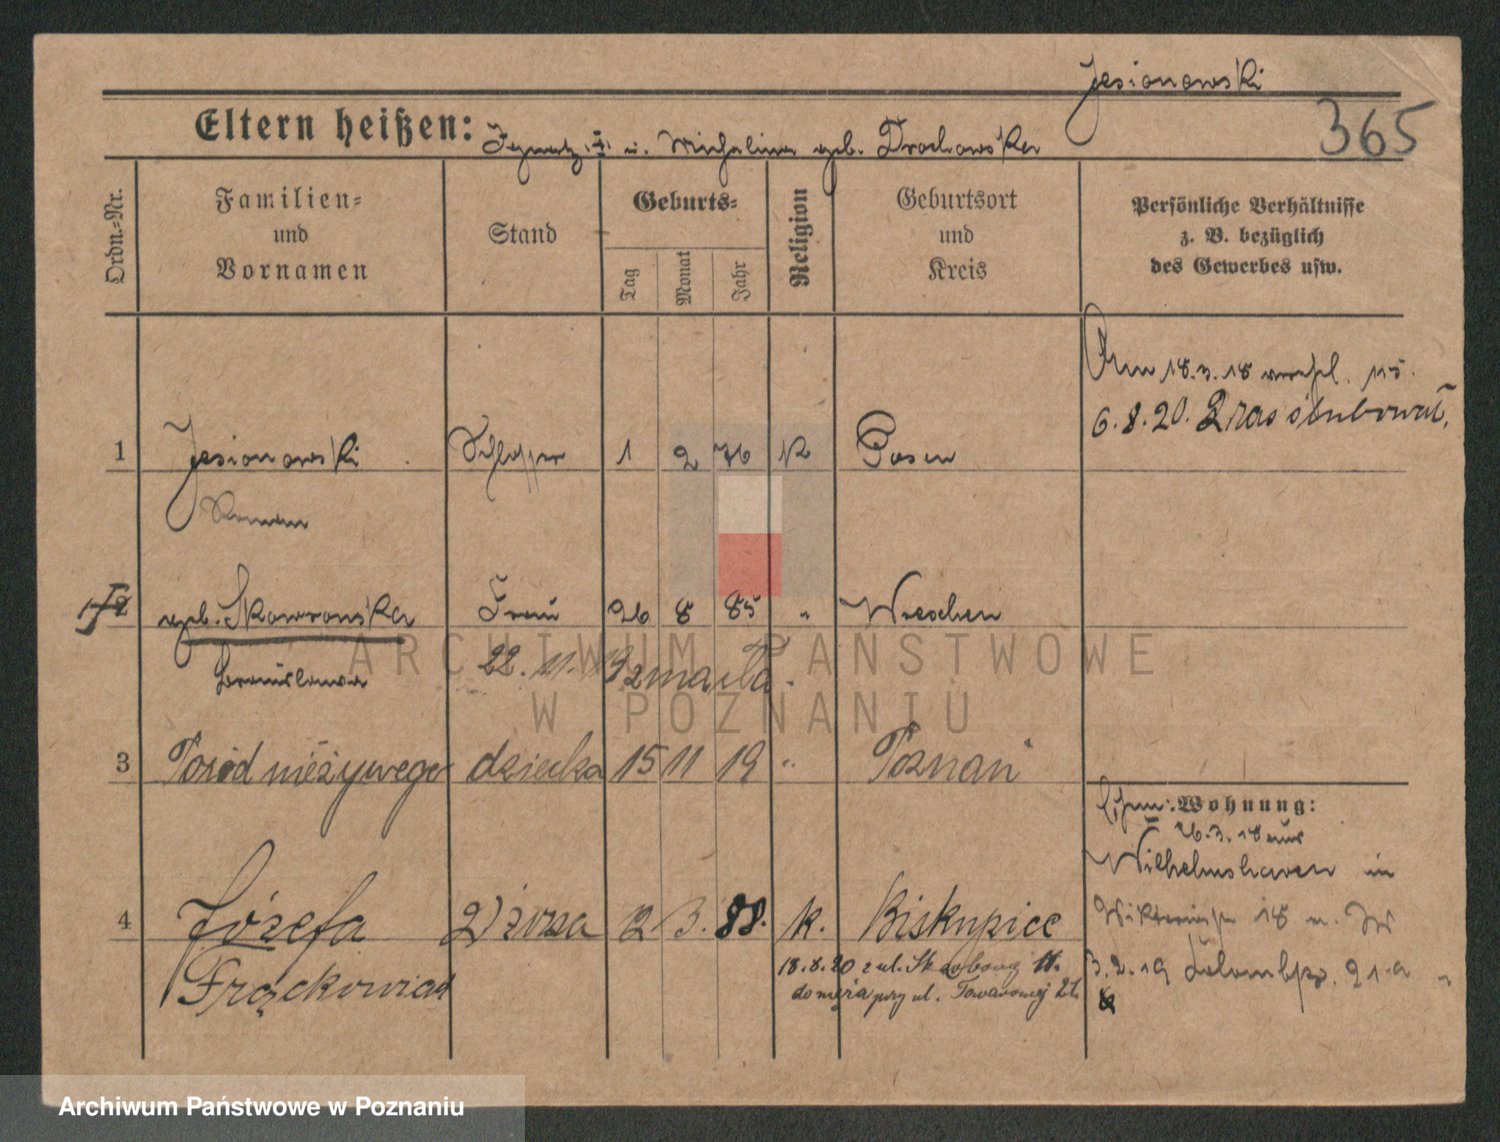 Jesionowski
365
Eltern heißen: Ignatz u. Michalina geb. Drochowska
Ordn.=Nr.
Familien=
und
Vornamen
Stand
Geburts=
Tag
Monat
Jahr
Religion
Geburtsort
und
Kreis
Persönliche Verhältnisse
z. B. bezüglich
des Gewerbes usw.
Am 18.3.18
6.8.20.
1 Jesionowski Schlosser 1 2 76 K Posen
Roman
2 geb. Skowronska Frau 26 8 85 " Wreschen
Bronislawa 22.11.19 zmarła.
3 Poród nieżywego dziecka 15 11 19 " Poznań
Wohnung:
26.3.18 aus
Wilhelmshaven in
18
4 Józefa 2) żona 12 3. 88. k. Biskupice
Frąckowiak
18.8.20 z ul.
do męża przy ul. Towarowej 21
3.2.19 21a
ARCHIWUM PAŃSTWOWE
W POZNANIU
Archiwum Państwowe w Poznaniu